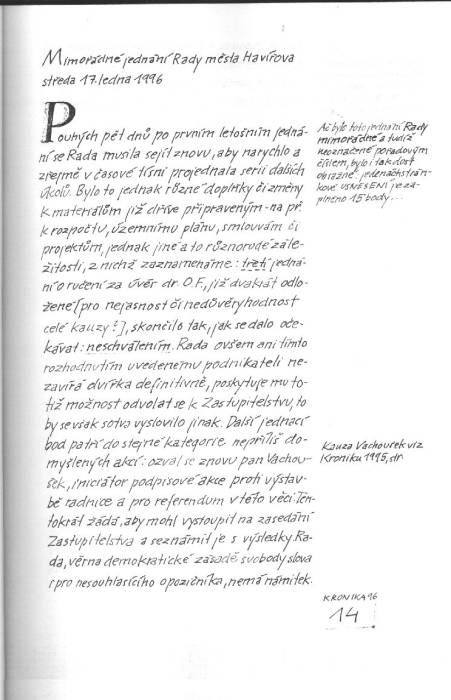 Mimořádné jednání Rady města Havířova
středa 17. ledna 1996
Pouhých pět dnů po prvním letošním jedná-
ní se Rada musila sejít znovu, aby narychlo a
zřejmě v časové tísni projednala serii dalších
úkolů. Bylo to jednak různé doplňky či změny
k materiálům již dříve připraveným - na př.
k rozpočtu, územnímu plánu, smlouvám či
projektům, jednak jiné a to různorodé zále-
žitosti, z nichž zaznamenáme: třetí jedná-
ní o ručení za úvěr dr. O.F., již dvakrát odlo-
žené [pro nejasnost či nedůvěryhodnost
celé kauzy?], skončilo tak, jak se dalo oče-
kávat: neschválením. Rada ovšem ani tímto
rozhodnutím uvedenému podnikateli ne-
zavírá dvířka definitivně, poskytuje mu to-
tiž možnost odvolat se k Zastupitelstvu, to
by se však sotva vyslovilo jinak. Další jednací
bod patří do stejné kategorie nepříliš do-
myšlených akcí: ozval se znovu pan Vachou-
šek, iniciátor podpisové akce proti výstav-
bě radnice a pro referendum v této věci. Ten-
tokrát žádá, aby mohl vystoupit na zasedání
Zastupitelstva a seznámit je s výsledky. Ra-
da, věrna demokratické zásadě svobody slova
i pro nesouhlasícího opozičníka, nemá námitek.
Ač bylo toto jednání Rady
mimořádné a tudíž
neoznačené pořadovým
číslem, bylo i tak dost
obsažné: jedenáctistrán-
kové USNESENÍ je za-
plněno 15 body...
Kauza Vachoušek viz
Kroniku 1995, str.
KRONIKA 96
14